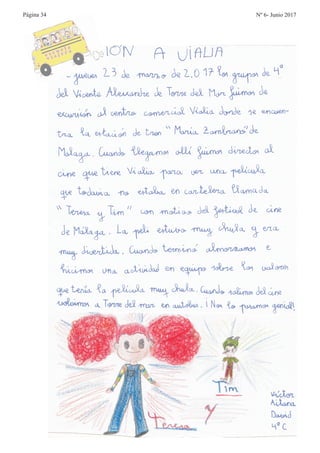 Página 34
Nº 6- Junio 2017
IÓN A VIALIA
- Jueves 23 de marzo de 2.017 los grupos de 4º
del Vicente Aleixandre de Torre del Mar fuimos de
excursión al centro comercial Vialia donde se encuen-
tra la estación de tren "María Zambrano" de
Málaga. Cuando llegamos allí fuimos directos al
cine que tiene Vialia para ver una película
que todavía no estaba en cartelera llamada
"Teresa y Tim" con motivo del festival de cine
de Málaga. La peli estuvo muy chula y era
muy divertida. Cuando terminó almorzamos e
hicimos una actividad en equipo sobre los valores
que tenía la película muy chula. Cuando salimos del cine
volvimos a Torre del mar en autobús. ¡Nos lo pasamos genial!
Tim
Teresa y
Víctor
Aitana
David
4º C